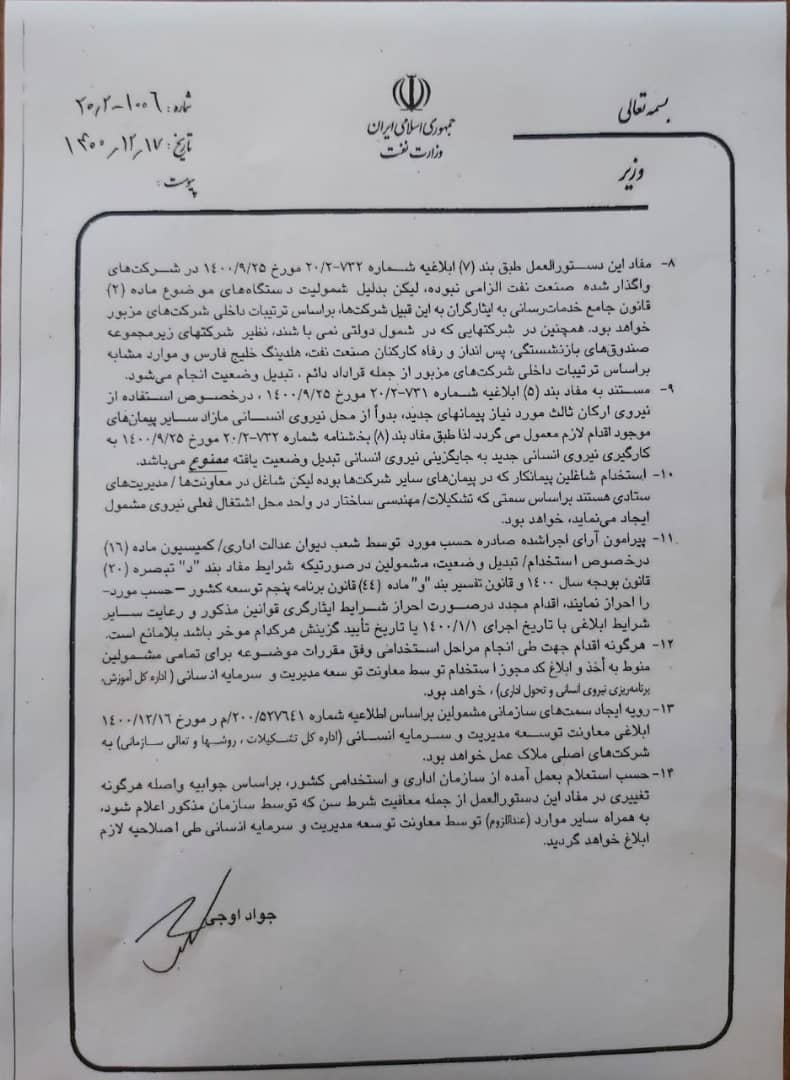 بسمه تعالی
جمهوری اسلامی ایران
وزارت نفت
وزیر
شماره: ۲۰٫۲-۱۰۰۶
تاریخ: ۱۴۰۰٫۱۲٫۱۷
پیوست:
۸- مفاد این دستورالعمل طبق بند (۷) ابلاغیه شماره ۷۳۲-۲۰/۲ مورخ ۱۴۰۰/۹/۲۵ در شرکت‌های
واگذار شده صنعت نفت الزامی نبوده، لیکن بدلیل شمولیت دستگاه‌های موضوع ماده (۲)
قانون جامع خدمات‌رسانی به ایثارگران به این قبیل شرکت‌ها، براساس ترتیبات داخلی شرکت‌های مزبور
خواهد بود. همچنین در شرکتهایی که در شمول دولتی نمی باشند، نظیر شرکتهای زیرمجموعه
صندوق‌های بازنشستگی، پس انداز و رفاه کارکنان صنعت نفت، هلدینگ خلیج فارس و موارد مشابه
براساس ترتیبات داخلی شرکت‌های مزبور از جمله قراداد دائم ، تبدیل وضعیت انجام می‌شود.
۹- مستند به مفاد بند (۵) ابلاغیه شماره ۷۳۱-۲۰/۲ مورخ ۱۴۰۰/۹/۲۵ ، درخصوص استفاده از
نیروی ارکان ثالث مورد نیاز پیمانهای جدید، بدواً از محل نیروی انسانی مازاد سایر پیمان‌های
موجود اقدام لازم معمول می گردد. لذا طبق مفاد بند (۸) بخشنامه شماره ۷۳۲-۲۰/۲ مورخ ۱۴۰۰/۹/۲۵ به
کارگیری نیروی انسانی جدید به جایگزینی نیروی انسانی تبدیل وضعیت یافته ممنوع می‌باشد.
۱۰- استخدام شاغلین پیمانکار که در پیمان‌های سایر شرکت‌ها بوده لیکن شاغل در معاونت‌ها / مدیریت‌های
ستادی هستند براساس سمتی که تشکیلات/ مهندسی ساختار در واحد محل اشتغال فعلی نیروی مشمول
ایجاد می‌نماید، خواهد بود.
۱۱- پیرامون آرای اجراشده صادره حسب مورد توسط شعب دیوان عدالت اداری/ کمیسیون ماده (۱۶)
درخصوص استخدام/ تبدیل وضعیت، مشمولین در صورتیکه شرایط مفاد بند "د" تبصره (۲۰)
قانون بودجه سال ۱۴۰۰ و قانون تفسیر بند "و" ماده (۴۴) قانون برنامه پنجم توسعه کشور – حسب مورد–
را احراز نمایند، اقدام مجدد درصورت احراز شرایط ایثارگری قوانین مذکور و رعایت سایر
شرایط ابلاغی با تاریخ اجرای ۱۴۰۰/۱/۱ یا تاریخ تأیید گزینش هرکدام موخر باشد بلامانع است.
۱۲- هرگونه اقدام جهت طی انجام مراحل استخدامی وفق مقررات موضوعه برای تمامی مشمولین
منوط به أخذ و ابلاغ کد مجوز استخدام توسط معاونت توسعه مدیریت و سرمایه انسانی (اداره کل آموزش،
برنامه‌ریزی نیروی انسانی و تحول اداری) ، خواهد بود.
۱۳- رویه ایجاد سمت‌های سازمانی مشمولین براساس اطلاعیه شماره ۲۰۰/۵۲۷۶۴۱/م ر مورخ ۱۴۰۰/۱۲/۱۶
ابلاغی معاونت توسعه مدیریت و سرمایه انسانی (اداره کل تشکیلات ، روشها و تعالی سازمانی) به
شرکت‌های اصلی ملاک عمل خواهد بود.
۱۴- حسب استعلام بعمل آمده از سازمان اداری و استخدامی کشور، براساس جوابیه واصله هرگونه
تغییری در مفاد این دستورالعمل از جمله معافیت شرط سن که توسط سازمان مذکور اعلام شود،
به همراه سایر موارد (عنداللزوم) توسط معاونت توسعه مدیریت و سرمایه انسانی طی اصلاحیه لازم
ابلاغ خواهد گردید.
جواد اوجی